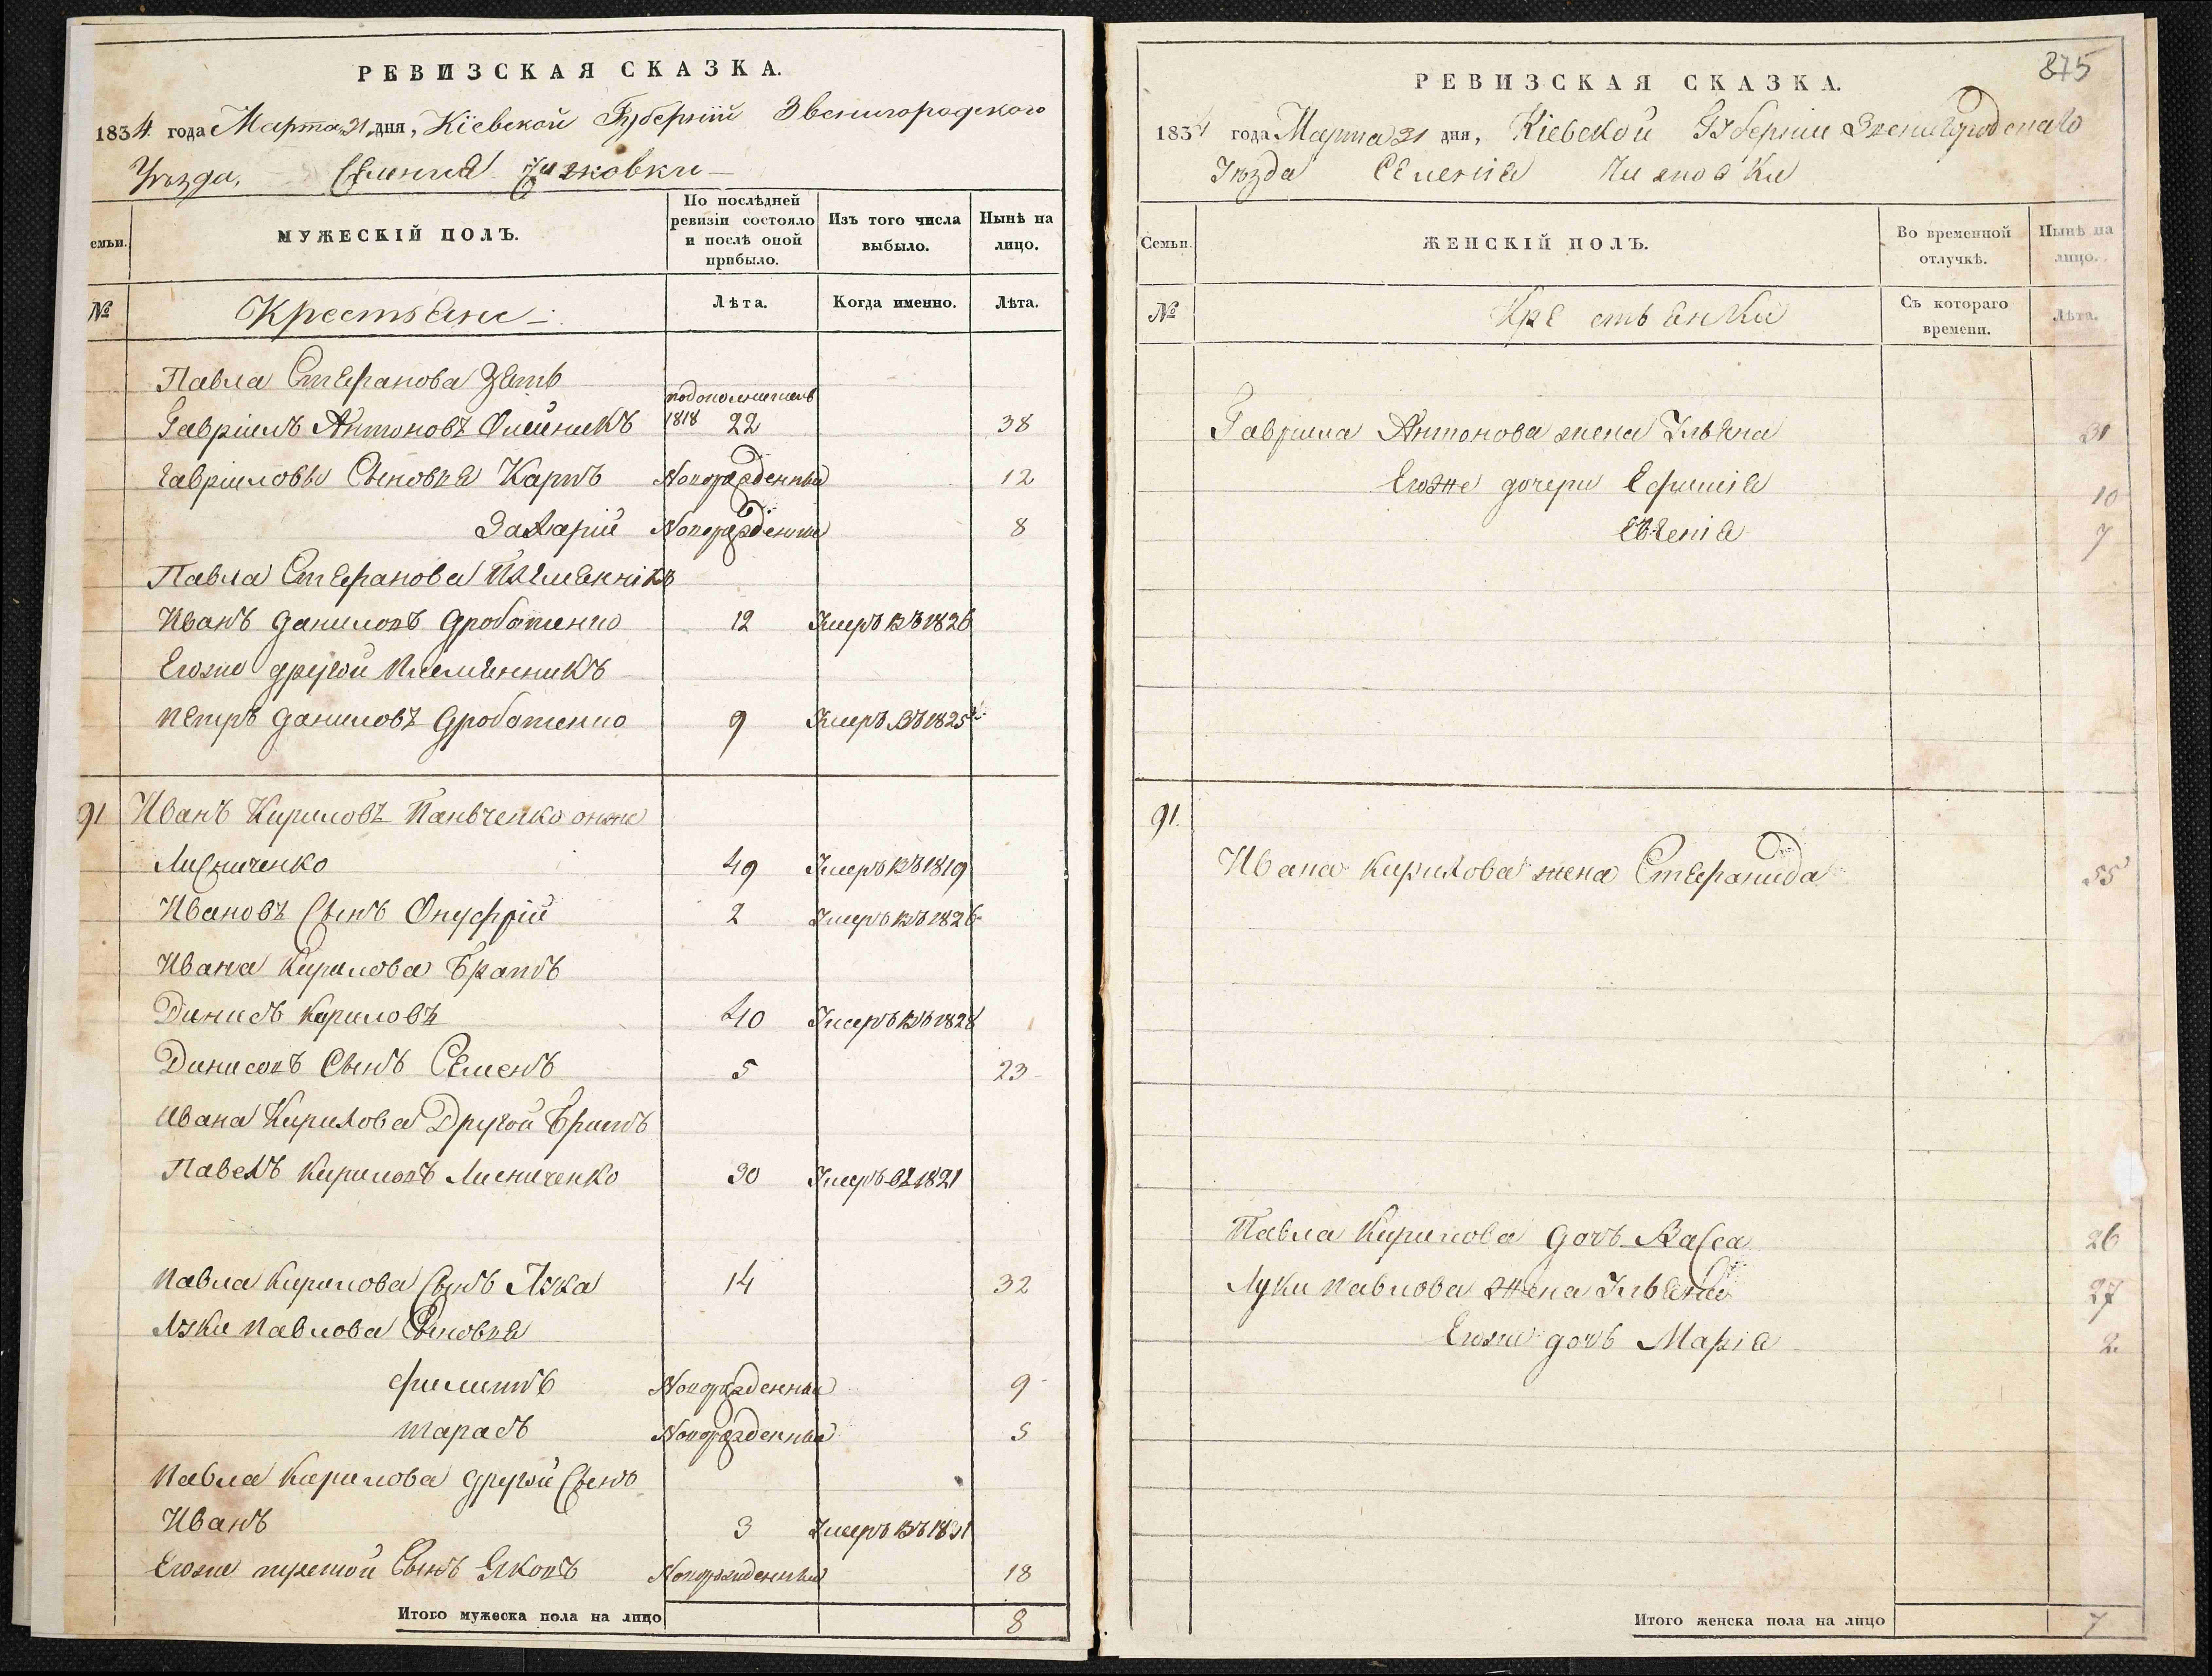 РЕВИЗСКАЯ СКАЗКА.
1834 года Марта 21 дня, Кіевской Губерніи Звенигородского
Уѣзда, Селенія Чижовки
емьи.
МУЖЕСКІЙ ПОЛЪ.
По послѣдней ревизіи состояло и послѣ оной прибыло.
Изъ того числа выбыло.
Нынѣ на лицо.
№
Крестьяне
Лѣта.
Когда именно.
Лѣта.
Павла Стефанова Зять
Гавріилъ Антоновъ Олійникъ 1818 22 38
Гавріиловы Сыновья Карпъ Новорожденный 12
Захарій Новорожденный 8
Павла Стефанова Племянникъ
Иванъ Даниловъ Дробатенко 12 Умеръ въ 1826
Егоже другой Племянникъ
Петръ Даниловъ Дробатенко 9 Умеръ въ 1825
91 Иванъ Кириловъ Панченко онже
Лисниченко 49 Умеръ въ 1819
Ивановъ Сынъ Онуфрій 2 Умеръ въ 1826
Ивана Кирилова Братъ
Динисъ Кириловъ 40 Умеръ въ 1828
Динисовъ Сынъ Семенъ 5 23
Ивана Кирилова Другой Братъ
Павелъ Кириловъ Лисниченко 30 Умеръ въ 1821
Павла Кирилова Сынъ Лука 14 32
Луки Павлова Сыновья
Филиппъ Новорожденный 9
Тарасъ Новорожденный 5
Павла Кирилова другой Сынъ
Иванъ 3 Умеръ въ 1831
Егоже третой Сынъ Яковъ Новорожденный 18
Итого мужеска пола на лицо 8
875
РЕВИЗСКАЯ СКАЗКА.
1834 года Марта 21 дня, Кіевской Губерніи Звенигородскаго
Уѣзда Селенія Чижовки
Семьи.
ЖЕНСКІЙ ПОЛЪ.
Во временной отлучкѣ.
Нынѣ на лицо.
№
Крестьянки
Съ котораго времени.
Лѣта.
Гавріила Антонова жена Ульяна 31
Егоже дочери Ефимія 10
Евгенія 7
91.
Ивана Кирилова жена Стефанида 55
Павла Кирилова дочь Васса 26
Луки Павлова жена Ульяна 27
Егоже дочь Марія 2.
Итого женска пола на лицо 7